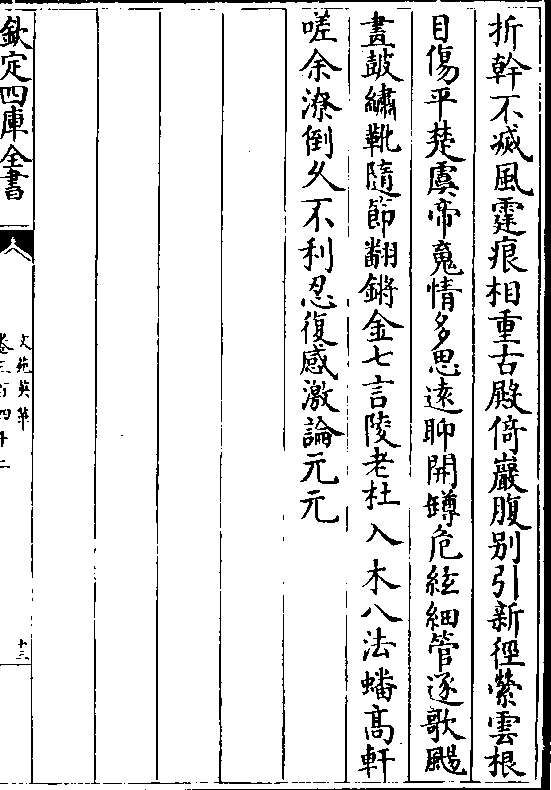 折幹不滅風霆痕相重古殿倚巖腹别引新徑縈雲根
目傷平楚虞帝䰟情多思逺聊開罇危絃細管逐歌颺
畫鼓繡靴隨節翻鏘金七言陵老杜入木八法蟠髙軒
嗟余潦倒久不利忍復感激論元元
欽定四庫全書
文苑英華
卷三百四十二
十三